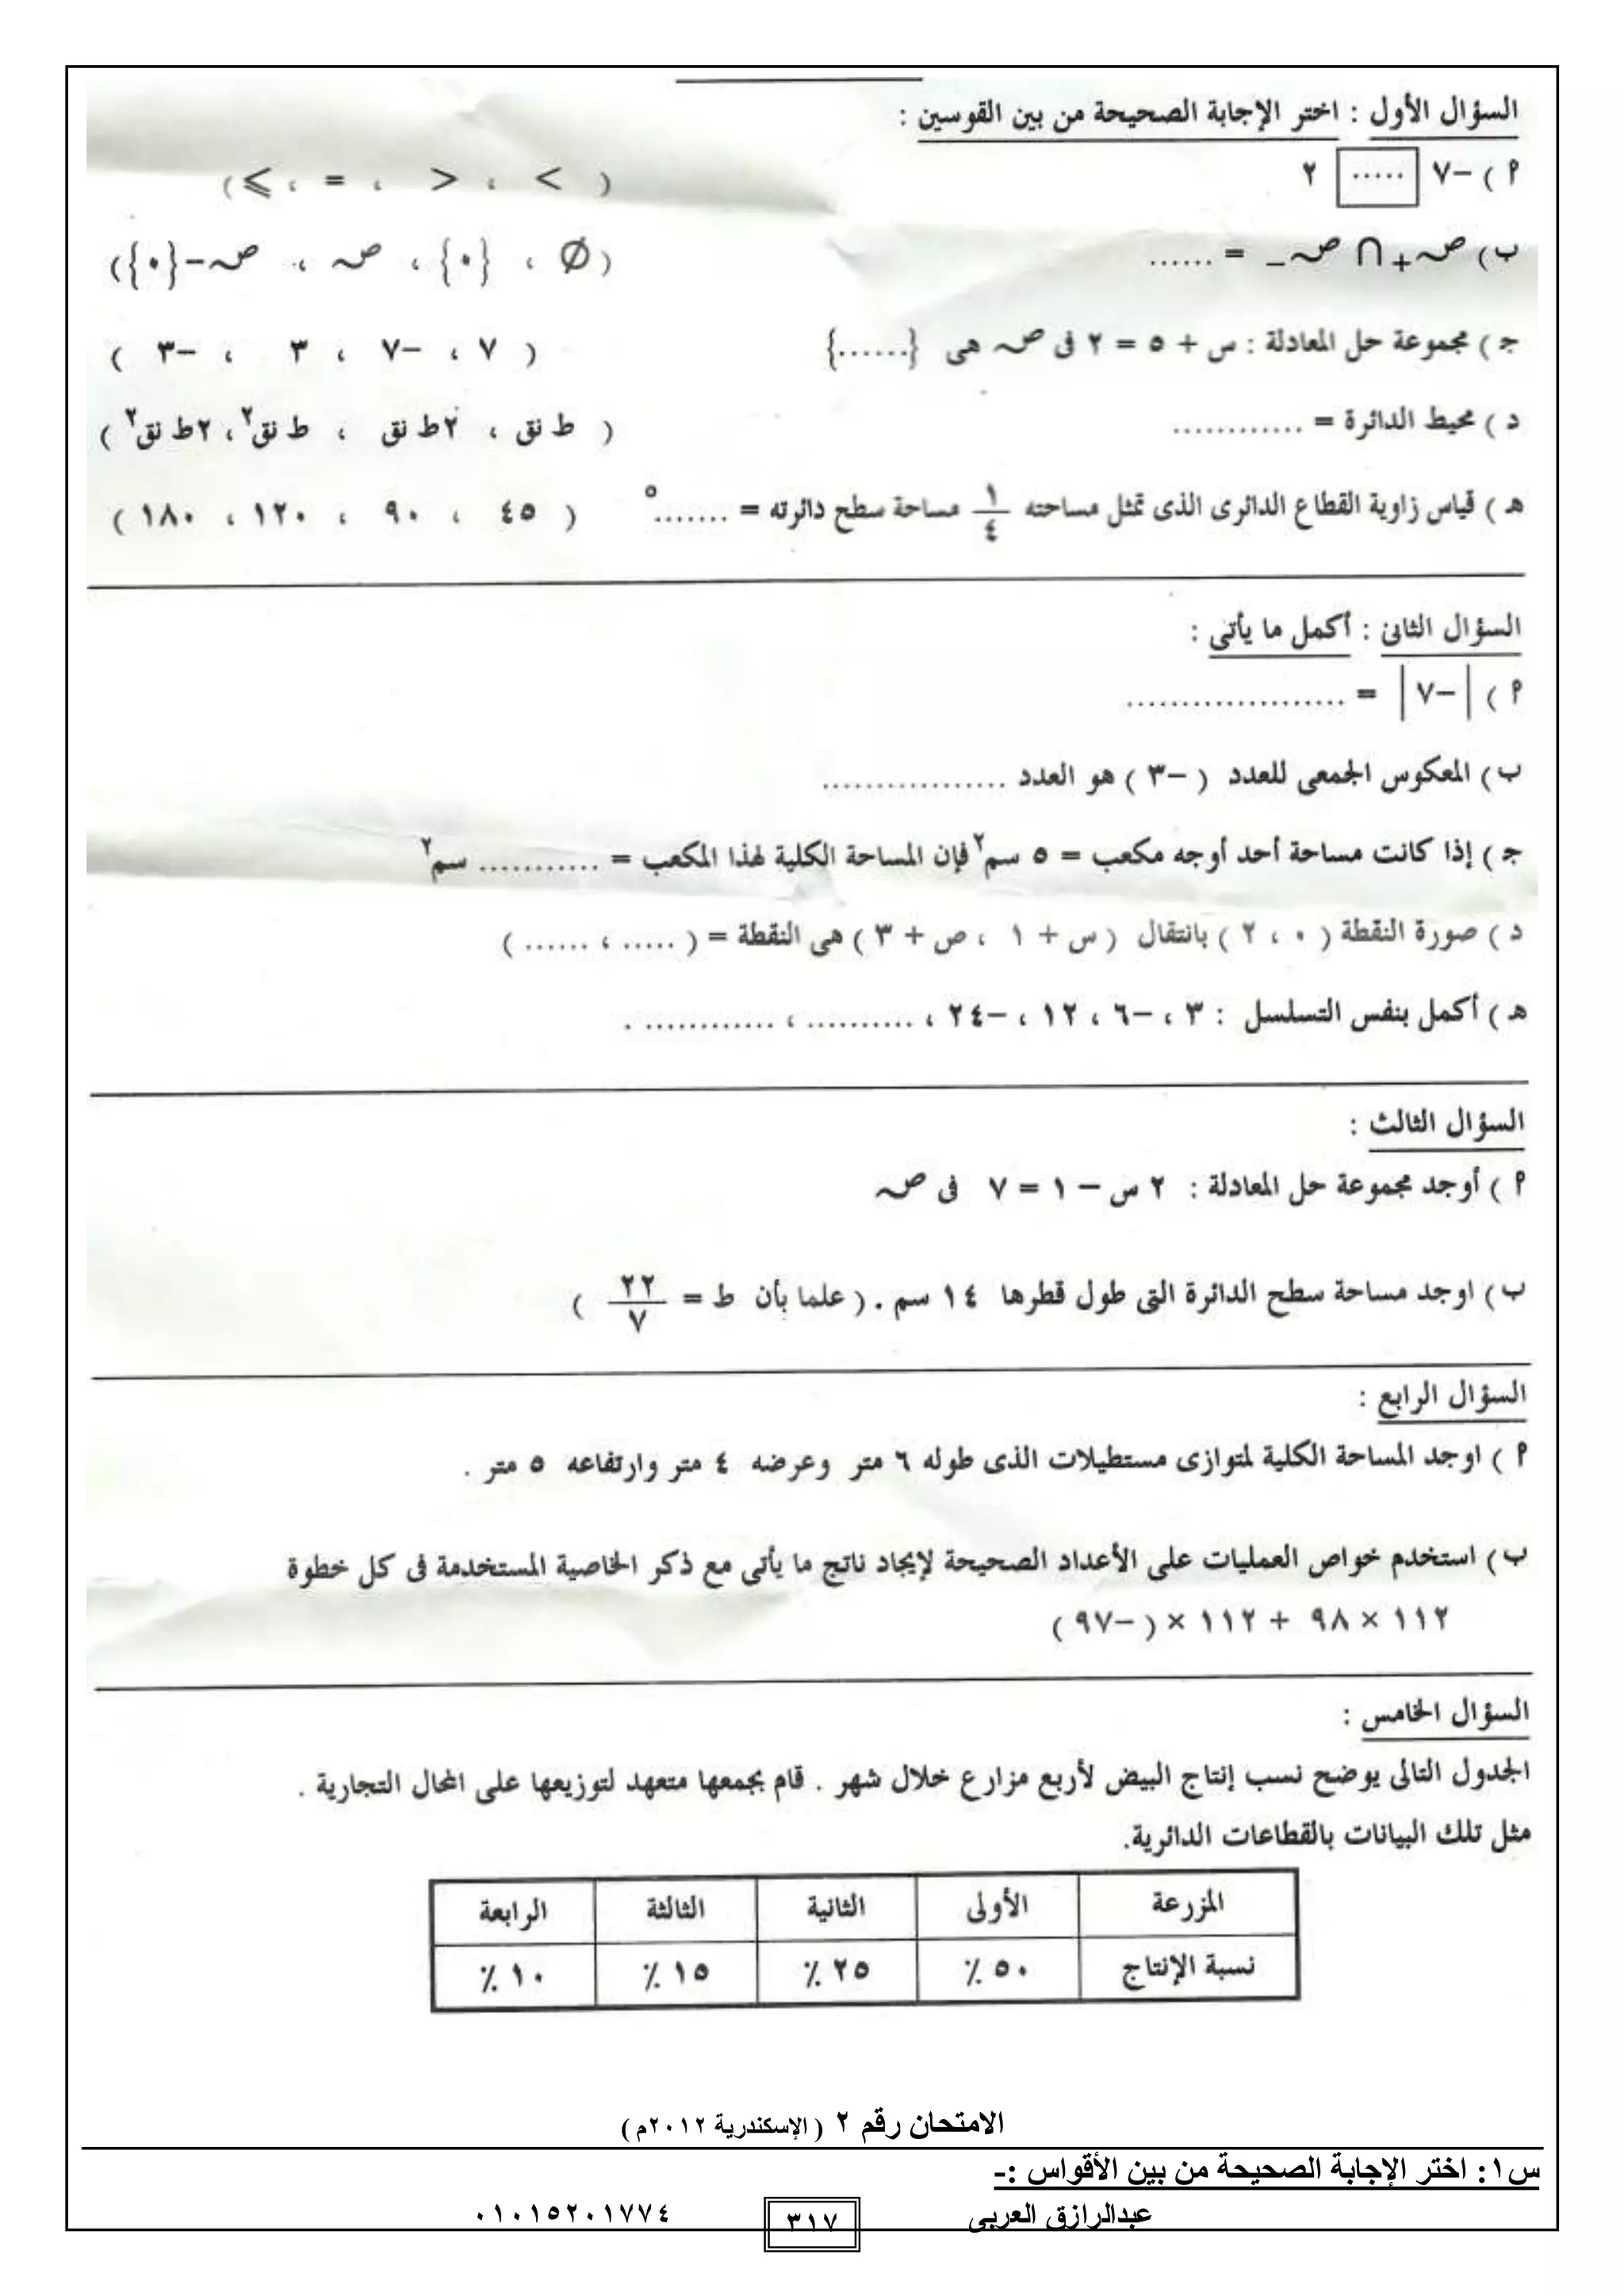 السؤال الأول : اختر الإجابة الصحيحة من بين القوسين :
٢ ) –٧ ..... ٢ ( < ، > ، = ، ⩽ )
ب ) صـ+ ∩ صـ– = ...... ( Ø ، {٠} ، صـ ، صـ–{٠} )
جـ ) مجموعة حل المعادلة : س + ٥ = ٢ فى صـ هى {......} ( ٧ ، –٧ ، ٣ ، –٣ )
د ) محيط الدائرة = ............ ( ط نق ، ٢ط نق ، ط نق٢ ، ٢ط نق٢ )
هـ ) قياس زاوية القطاع الدائرى الذى تمثل مساحته ١/٤ مساحة سطح دائرته = .......° ( ٤٥ ، ٩٠ ، ١٢٠ ، ١٨٠ )
السؤال الثانى : أكمل ما يأتى :
٢ ) | –٧ | = ....................
ب ) المعكوس الجمعى للعدد ( –٣ ) هو العدد .................
جـ ) إذا كانت مساحة أحد أوجه مكعب = ٥ سم٢ فإن المساحة الكلية لهذا المكعب = ........... سم٢
د ) صورة النقطة ( ٠ ، ٢ ) بانتقال ( س + ١ ، ص + ٣ ) هى النقطة = ( ..... ، ...... )
هـ ) أكمل بنفس التسلسل : ٣ ، –٦ ، ١٢ ، –٢٤ ، .......... ، ............ .
السؤال الثالث :
٢ ) أوجد مجموعة حل المعادلة : ٢ س – ١ = ٧ فى صـ
ب ) اوجد مساحة سطح الدائرة التى طول قطرها ١٤ سم . ( علما بأن ط = ٢٢/٧ )
السؤال الرابع :
٢ ) اوجد المساحة الكلية لمتوازى مستطيلات الذى طوله ٦ متر وعرضه ٤ متر وارتفاعه ٥ متر .
ب ) استخدم خواص العمليات على الأعداد الصحيحة لإيجاد ناتج ما يأتى مع ذكر الخاصية المستخدمة فى كل خطوة
١١٢ × ٩٨ + ١١٢ × ( –٩٧ )
السؤال الخامس :
الجدول التالى يوضح نسب إنتاج البيض لأربع مزارع خلال شهر . قام بجمعها متعهد لتوزيعها على المحال التجارية .
مثل تلك البيانات بالقطاعات الدائرية.
المزرعة الأولى الثانية الثالثة الرابعة
نسبة الإنتاج ٥٠ ٪ ٢٥ ٪ ١٥ ٪ ١٠ ٪
الامتحان رقم ٢ ( الإسكندرية ٢٠١٢م )
س١: اختر الإجابة الصحيحة من بين الأقواس :-
عبدالرازق العربى ٣١٧ ٠١٠١٥٢٠١٧٧٤